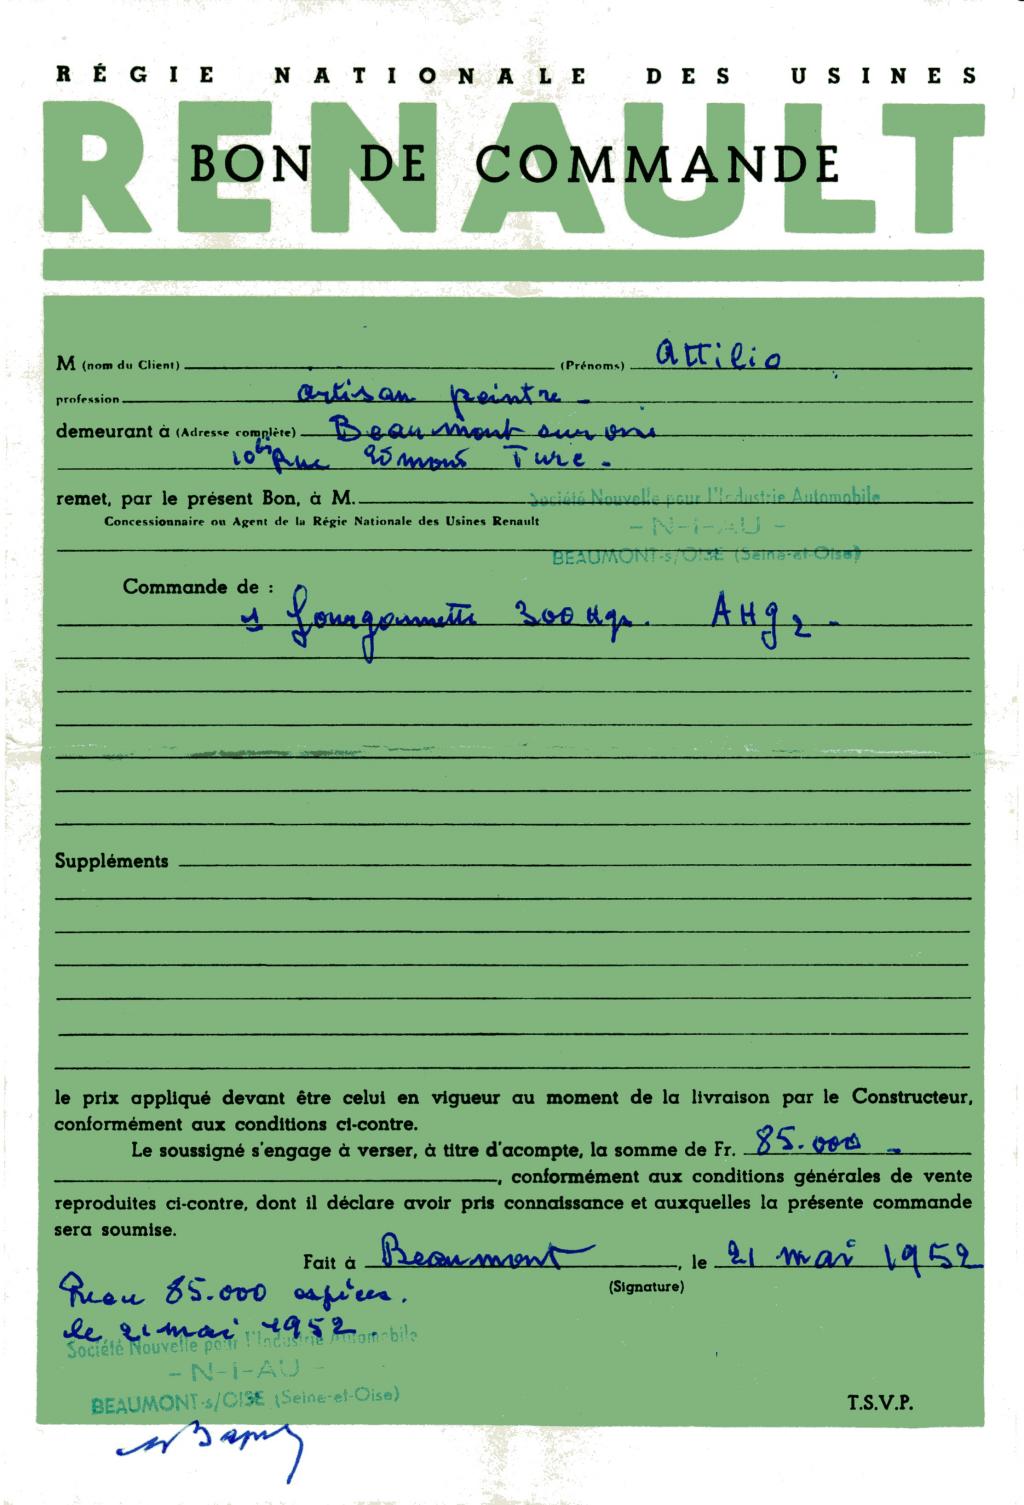 RÉGIE NATIONALE DES USINES
RENAULT
BON DE COMMANDE
M (nom du Client) (Prénoms) Attilio
profession artisan peintre -
demeurant à (Adresse complète) Beaumont sur oise
10 bis Rue Edmond Turc -
remet, par le présent Bon, à M. Société Nouvelle pour l'Industrie Automobile
Concessionnaire ou Agent de la Régie Nationale des Usines Renault
- N-i-AU -
BEAUMONT-s/OISE (Seine-et-Oise)
Commande de :
1 fourgonnette 300 Kgs. AHG2 -
Suppléments
le prix appliqué devant être celui en vigueur au moment de la livraison par le Constructeur,
conformément aux conditions ci-contre.
Le soussigné s'engage à verser, à titre d'acompte, la somme de Fr. 85.000 -
, conformément aux conditions générales de vente
reproduites ci-contre, dont il déclare avoir pris connaissance et auxquelles la présente commande
sera soumise.
Fait à Beaumont, le 21 mai 1952
(Signature)
85.000 espèces.
le 21 mai 1952.
Société Nouvelle pour l'Industrie Automobile
- N-i-AU -
BEAUMONT-s/OISE (Seine-et-Oise)
T.S.V.P.